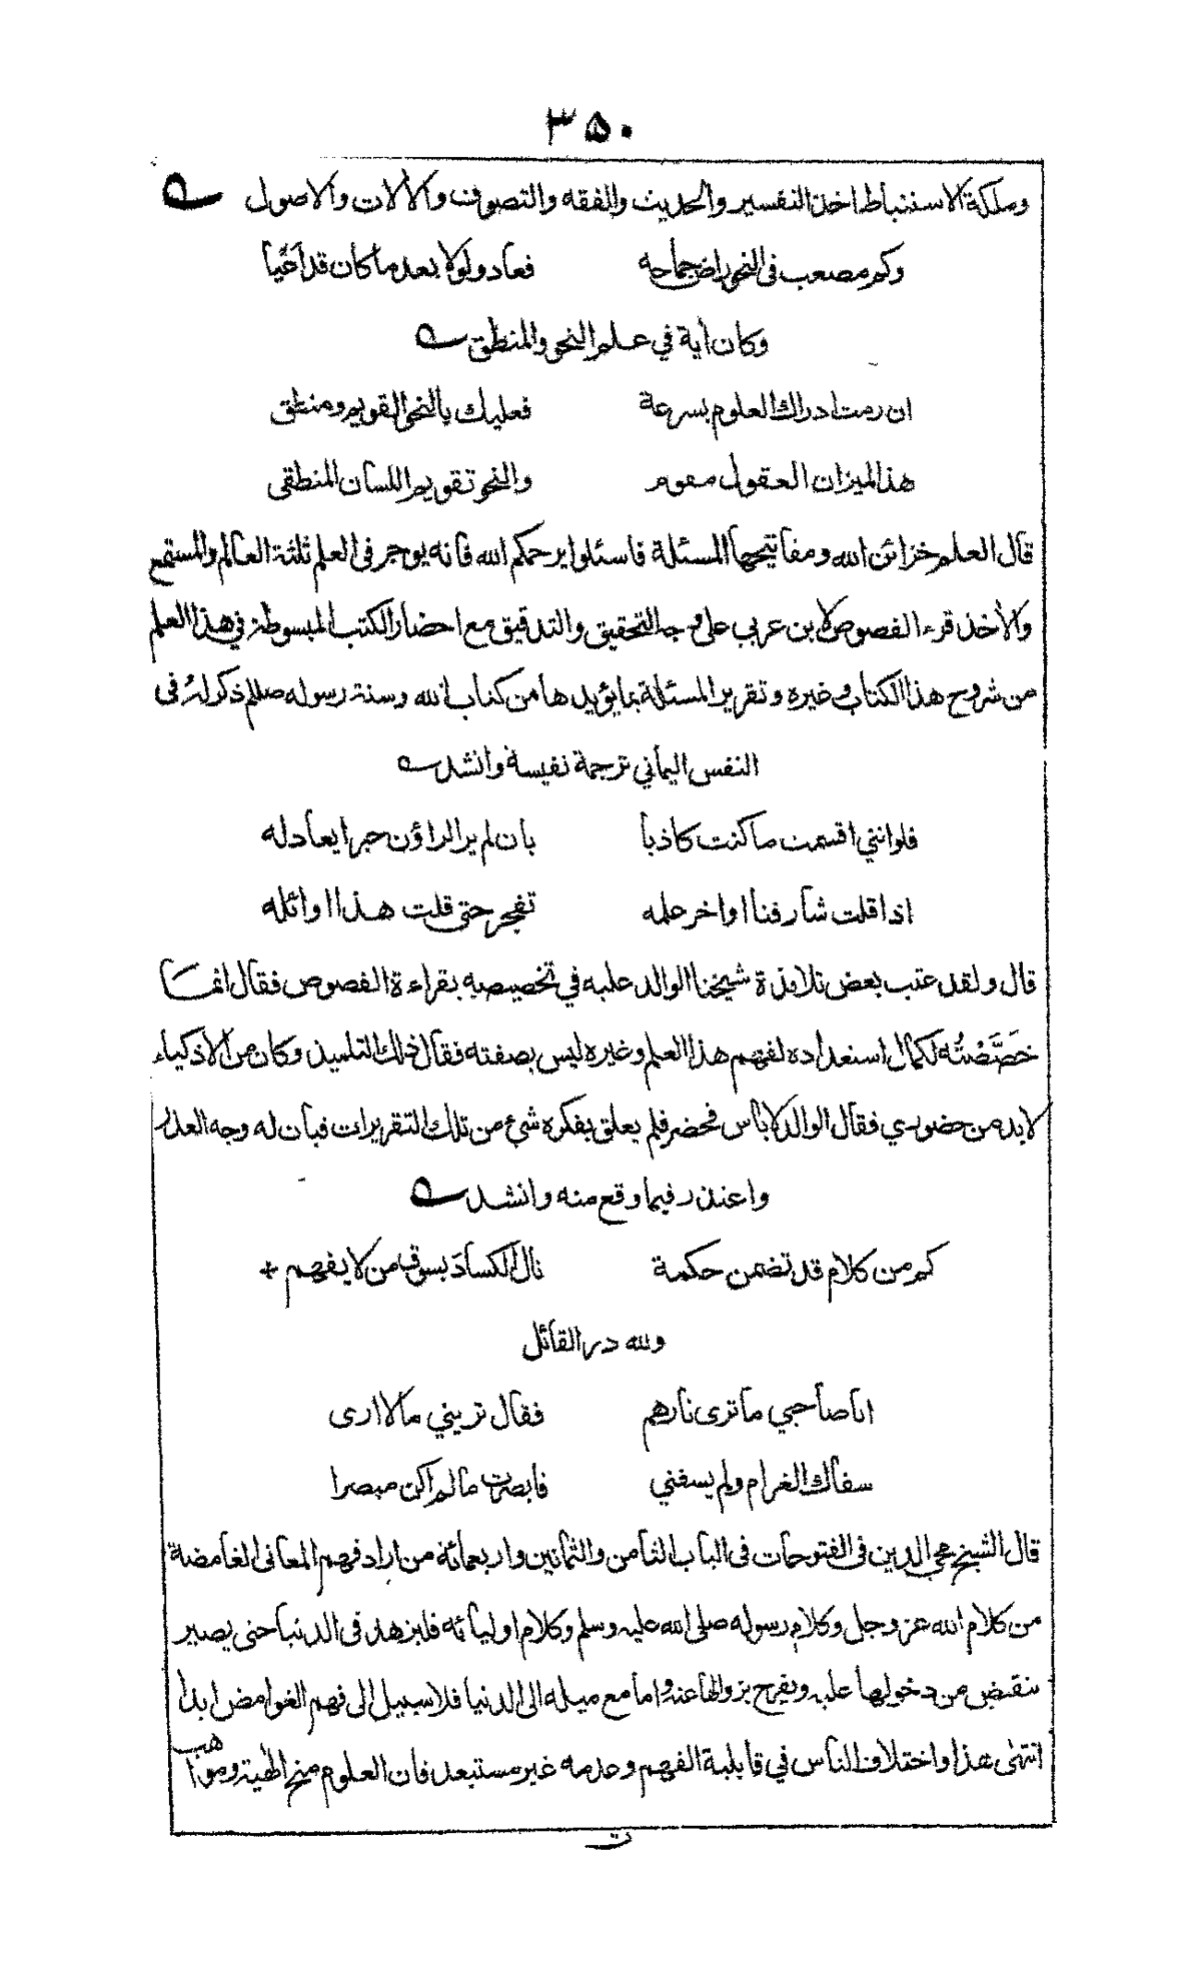 ٣٥٠
وملكة الاستنباط اخذ التفسير والحديث والفقه والتصوف والألات والاصول
وكم مصعب فى النحو راض جماحه فعاد ذلولا بعد ما كان قد اعيا
وكان أية في علم النحو والمنطق
ان رمت ادراك العلوم بسرعة فعليك بالنحو القويم ومنطق
هذا لميزان العقول مقوم والنحو تقويم اللسان المنطقى
قال العلم خزائن الله ومفاتيحها المسئلة فاسئلوا يرحمكم الله فانه يوجر فى العلم ثلثة العالم والمستمع
والأخذ قرء الفصوص لابن عربي على وجه التحقيق والتدقيق مع احضار الكتب المبسوطة في هذا العلم
من شروح هذا الكتاب وغيره وتقرير المسئلة بما يؤيدها من كتاب الله وسنة رسوله صللم ذكر له فى
النفس اليماني ترجمة نفيسة وانشد
فلو انني اقسمت ما كنت كاذبا بان لم ير الراؤن حبرا يعادله
اذا قلت شارفنا اواخر علمه تفجر حتى قلت هذا اوائله
قال ولقد عتب بعض تلامذة شيخنا الوالد عليه في تخصيصه بقراءة الفصوص فقال انما
خَصَّصْتُه لكمال استعداده لفهم هذا العلم وغيره ليس بصفته فقال ذلك التلميذ وكان من الاذكياء
لا بد من حضوري فقال الوالد لا باس فحضر فلم يعلق بفكره شئ من تلك التقريرات فبان له وجه العذر
واعتذر فيما وقع منه وانشد
كم من كلام قد تضمن حكمة نال الكساد بسوق من لا يفهم +
ولله در القائل
ايا صاحبي ما ترى نارهم فقال تريني ما لا ارى
سقاك الغرام ولم يسقني فابصرت ما لم اكن مبصرا
قال الشيخ محي الدين فى الفتوحات فى الباب الثامن والثمانين واربعمائة من اراد فهم المعانى الغامضة
من كلام الله عز وجل وكلام رسوله صلى الله عليه وسلم وكلام اوليائه فليزهد فى الدنيا حتى يصير
ينقبض من دخولها عليه ويفرح بزوالها عنه واما مع ميله الى الدنيا فلا سبيل الى فهم الغوامض ابدا
انتهى هذا واختلاف الناس في قابلية الفهم وعدمه غير مستبعد فان العلوم منح الهية ومواهب